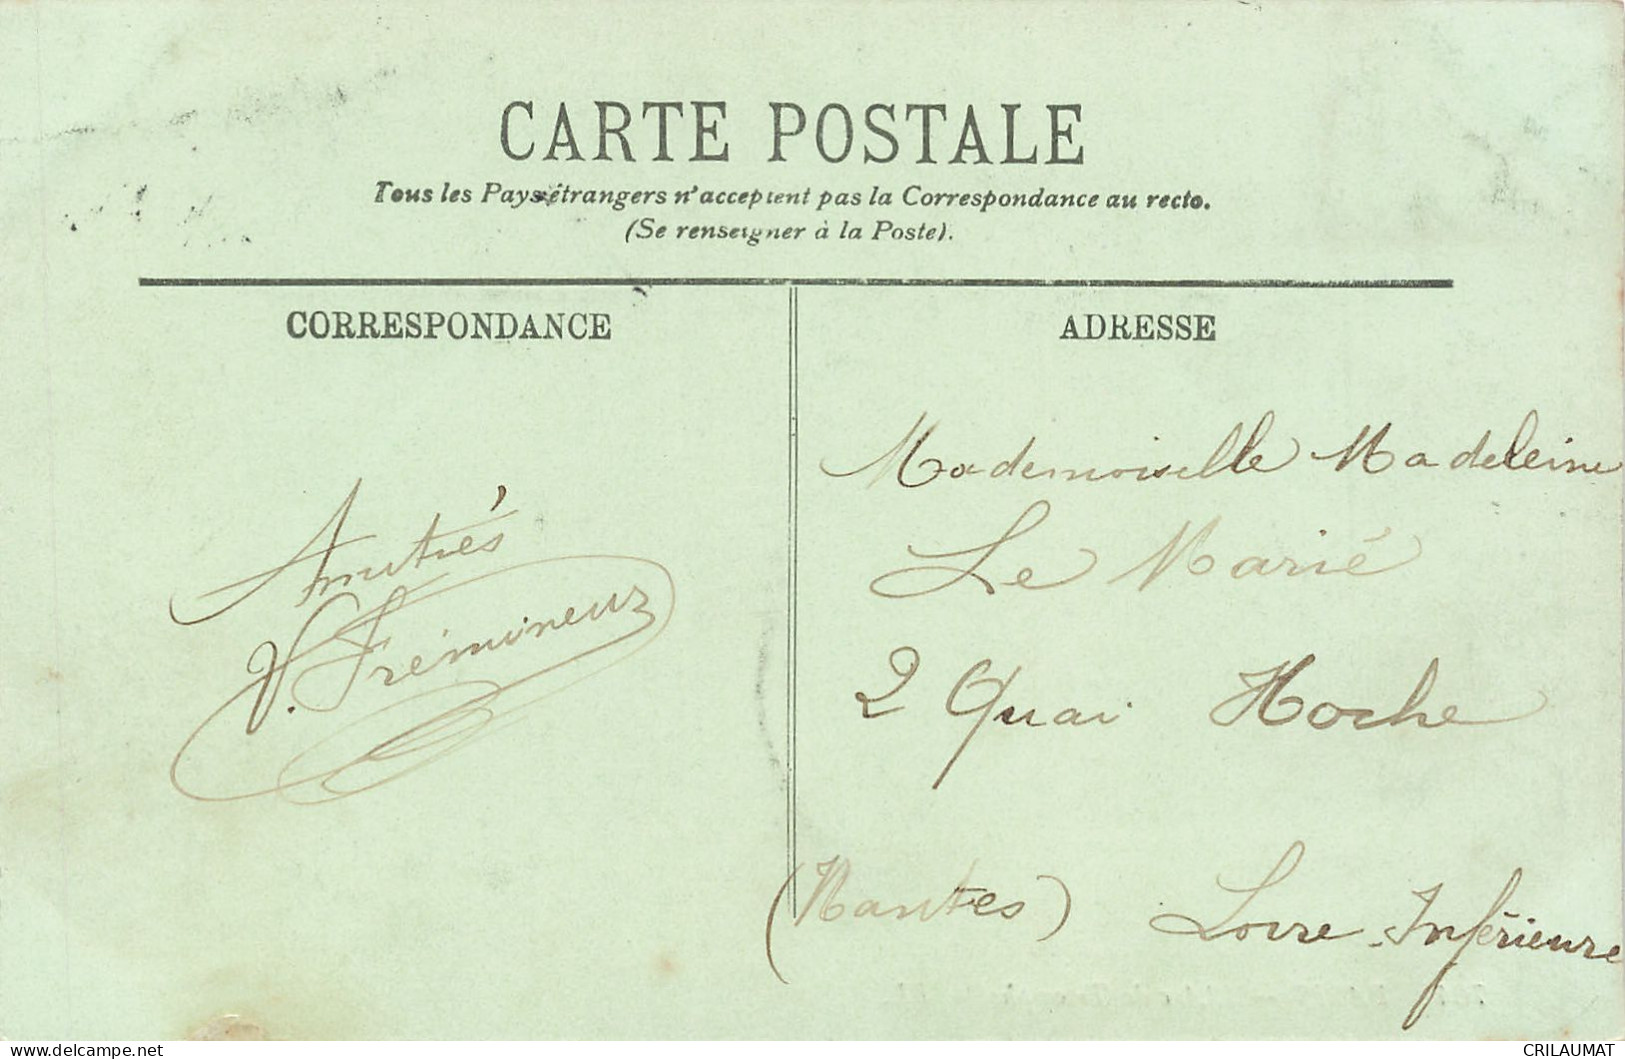 CARTE POSTALE
Tous les Pays étrangers n'acceptent pas la Correspondance au recto.
(Se renseigner à la Poste).
CORRESPONDANCE
ADRESSE
Amitiés
V. Frémineur
Mademoiselle Madeleine
Le Marié
2 Quai Hoche
(Nantes) Loire-Inférieure
www.delcampe.net
CRILAUMAT